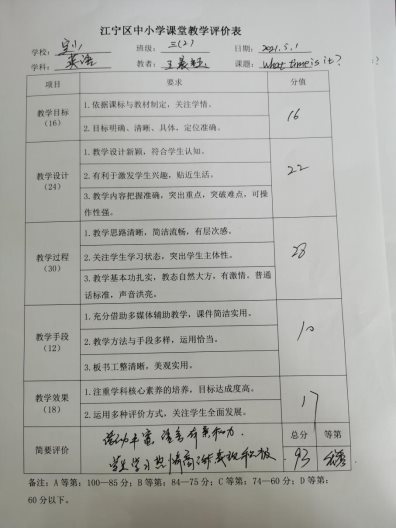 江宁区中小学课堂教学评价表
学校: 班级:三(2) 日期:2021.5.1
学科:英语 教者: 课题:What time is it?
项目 要求 分值
教学目标(16) 1.依据课标与教材制定,关注学情。 16
2.目标明确、清晰、具体,定位准确。
教学设计(24) 1.教学设计新颖,符合学生认知。 22
2.有利于激发学生兴趣,贴近生活。
3.教学内容把握准确,突出重点,突破难点,可操
作性强。
教学过程(30) 1.教学思路清晰,简洁流畅,有层次感。 28
2.关注学生学习状态,突出学生主体性。
3.教学基本功扎实,教态自然大方,有激情,普通
话标准,声音洪亮。
教学手段(12) 1.充分借助多媒体辅助教学,课件简洁实用。 10
2.教学方法与手段多样,运用恰当。
3.板书工整清晰,美观实用。
教学效果(18) 1.注重学科核心素养的培养,目标达成度高。 17
2.运用多种评价方式,关注学生全面发展。
简要评价 活动丰富,语言有亲和力. 总分 等第
学生学习热情高涨表现积极. 93
备注:A等第:100—85分;B等第:84—75分;C等第:74—60分;D等第:
60分以下。